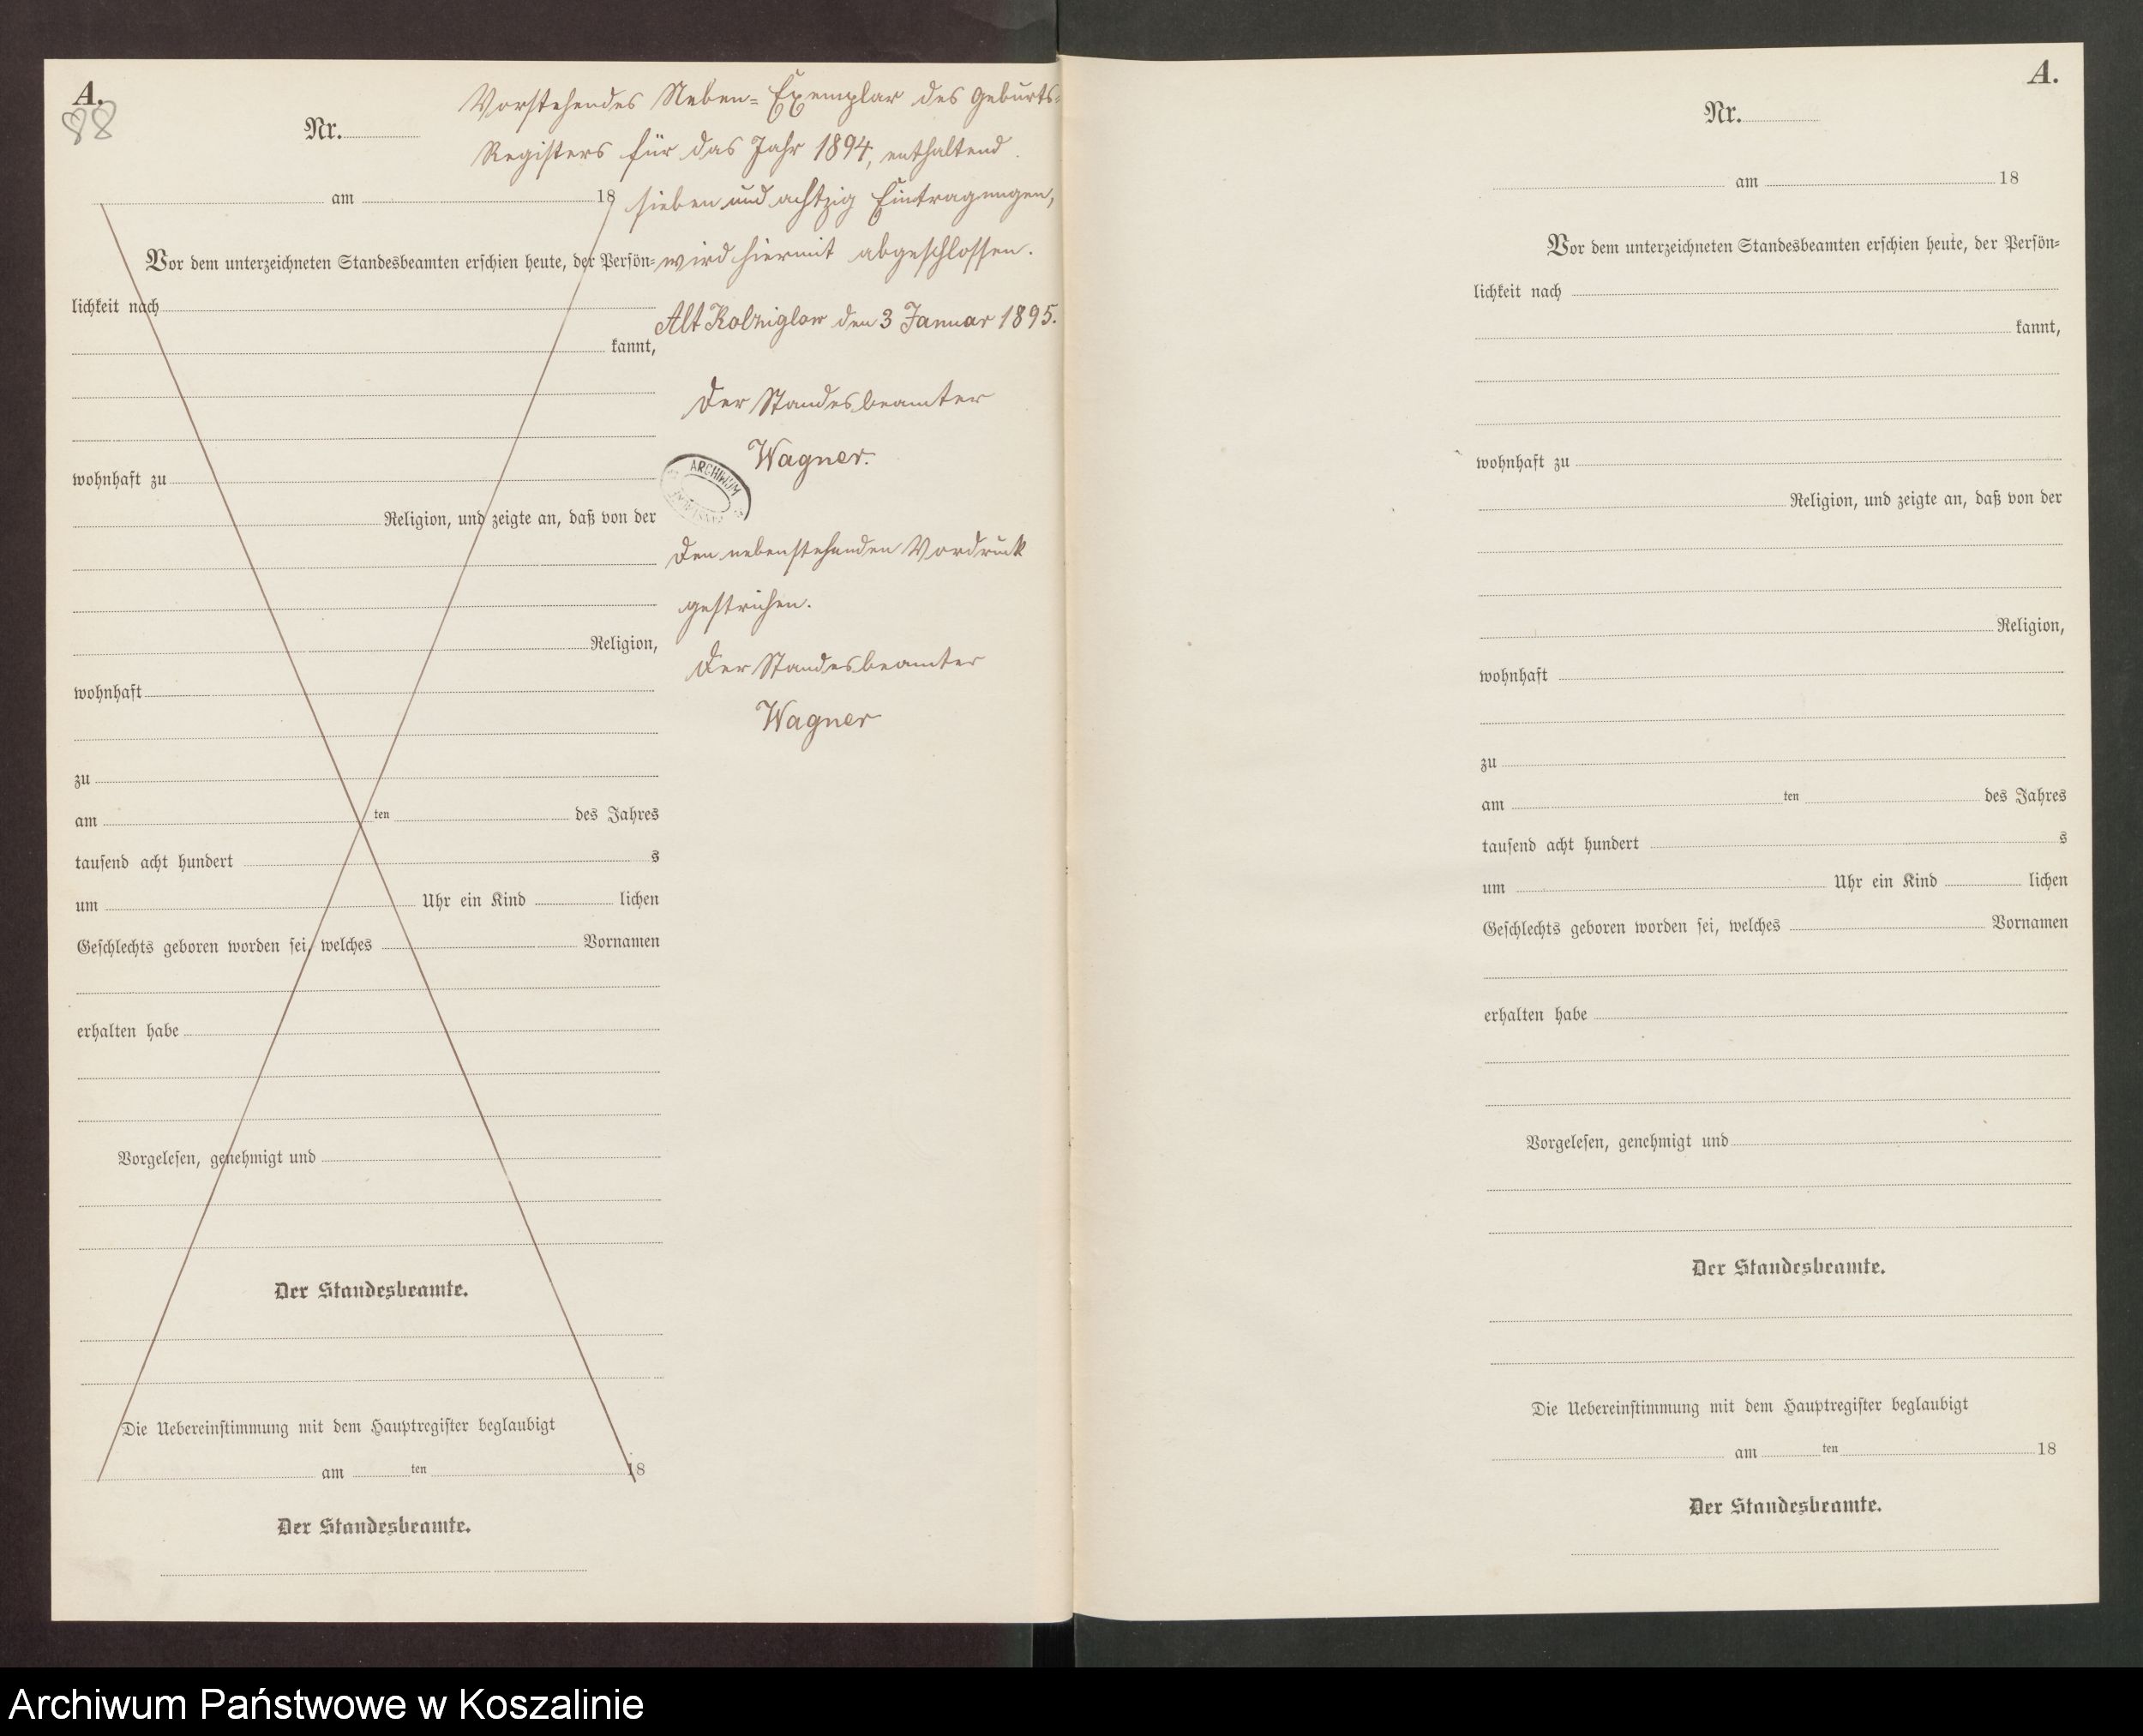 A.
88
Nr.
Vorstehendes Neben= Exemplar des Geburts=
Registers für das Jahr 1894, enthaltend
sieben und achtzig Eintragungen,
wird hiermit abgeschlossen.
Alt Kolziglow den 3 Januar 1895.
Der Standesbeamter
Wagner.
ARCHIWUM
Den nebenstehenden Vordruck
gestrichen.
Der Standesbeamter
Wagner
am 18
Vor dem unterzeichneten Standesbeamten erschien heute, der Persön=
lichkeit nach
kannt,
wohnhaft zu
Religion, und zeigte an, daß von der
Religion,
wohnhaft
zu
am ten des Jahres
tausend acht hundert s
um Uhr ein Kind lichen
Geschlechts geboren worden sei, welches Vornamen
erhalten habe
Vorgelesen, genehmigt und
Der Standesbeamte.
Die Uebereinstimmung mit dem Hauptregister beglaubigt
am ten 18
Der Standesbeamte.
A.
Nr.
am 18
Vor dem unterzeichneten Standesbeamten erschien heute, der Persön=
lichkeit nach
kannt,
wohnhaft zu
Religion, und zeigte an, daß von der
Religion,
wohnhaft
zu
am ten des Jahres
tausend acht hundert s
um Uhr ein Kind lichen
Geschlechts geboren worden sei, welches Vornamen
erhalten habe
Vorgelesen, genehmigt und
Der Standesbeamte.
Die Uebereinstimmung mit dem Hauptregister beglaubigt
am ten 18
Der Standesbeamte.
Archiwum Państwowe w Koszalinie